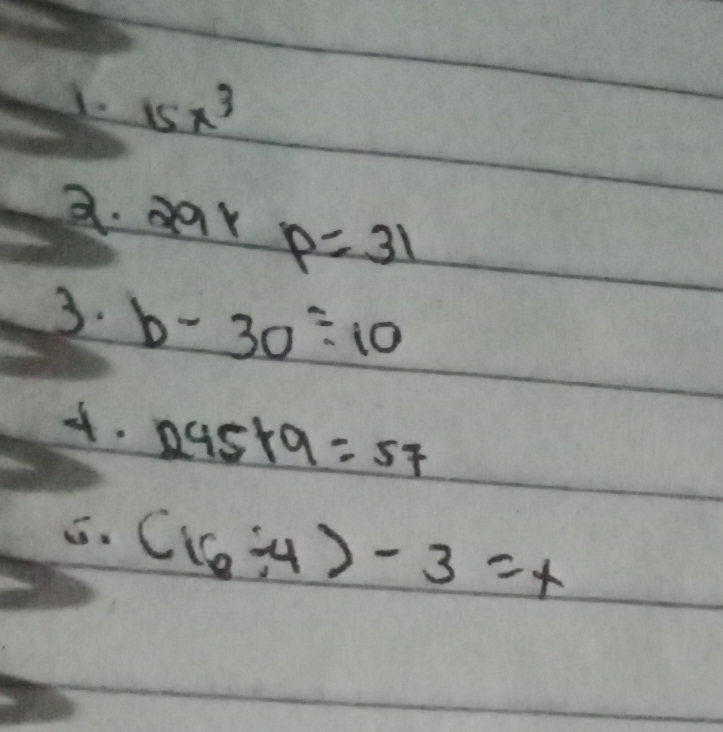 1. 15x³
2. 29+ p = 31
3. b - 30 ÷ 10
4. 245+9 = 57
5. (16÷4) - 3 = x